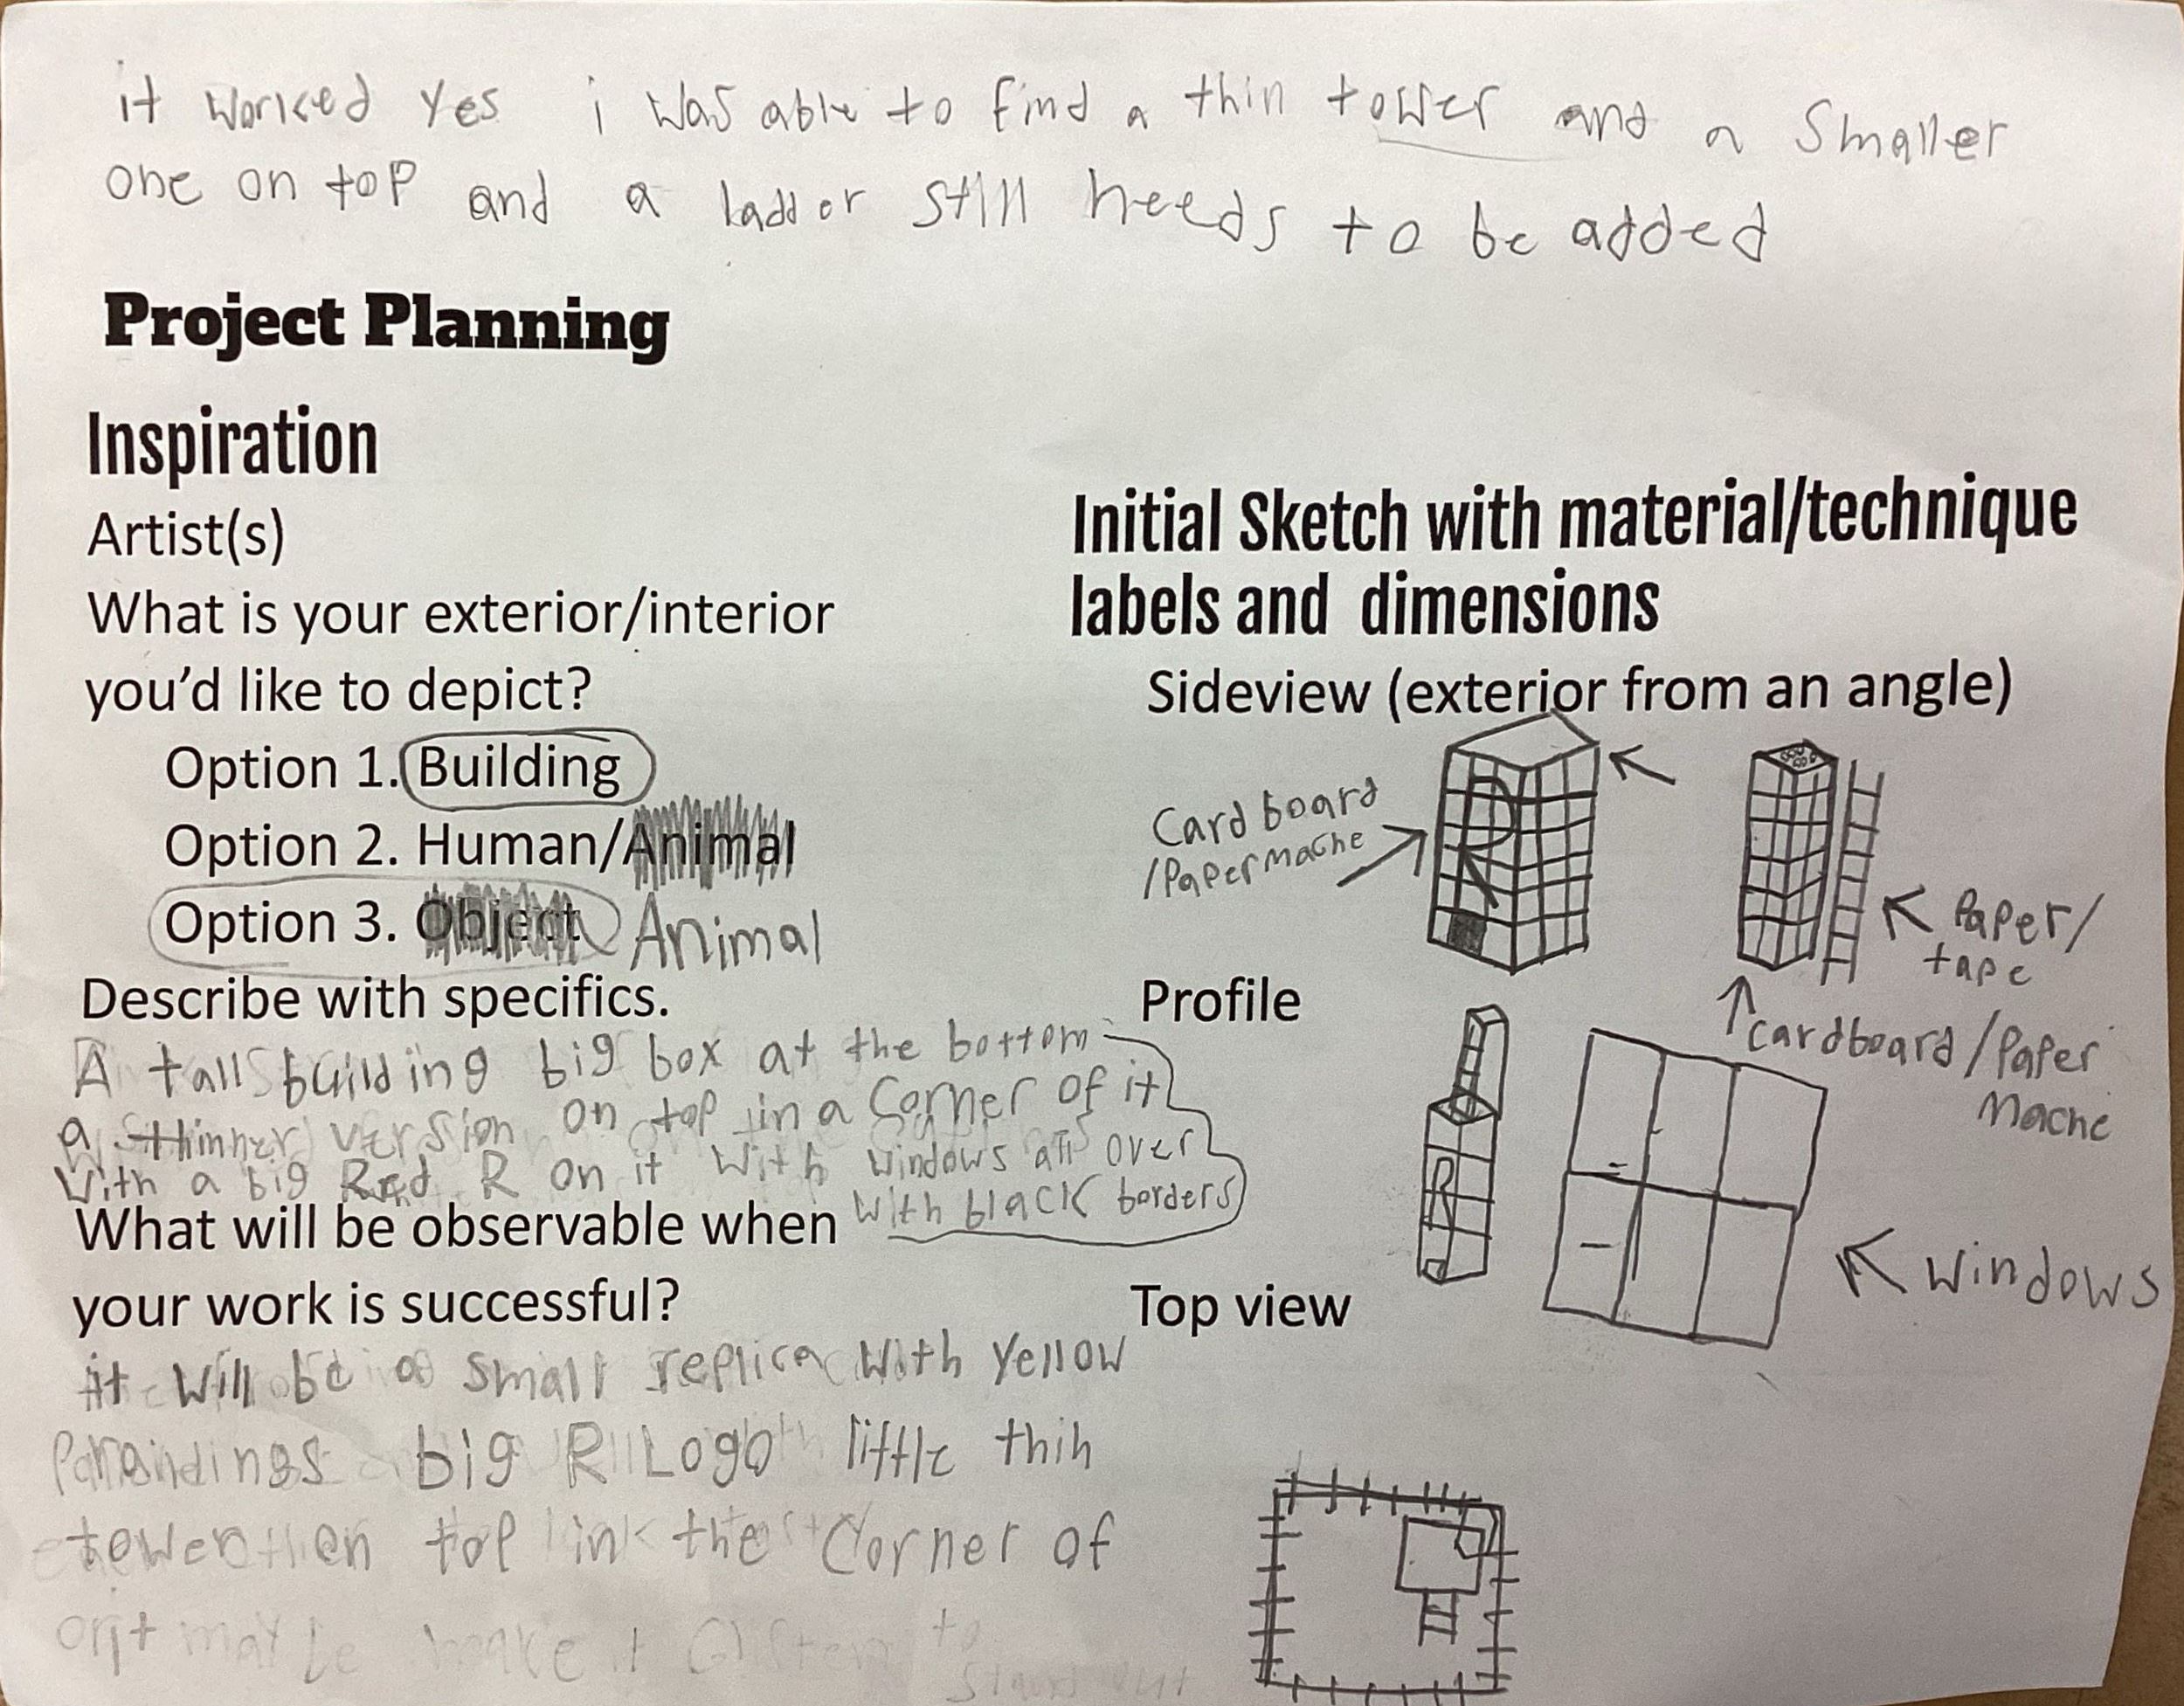 it worked yes i was able to find a thin tower and a smaller
one on top and a laddor still needs to be added
Project Planning
Inspiration
Artist(s)
What is your exterior/interior
you'd like to depict?
Option 1. Building
Option 2. Human/Animal
Option 3. Object Animal
Describe with specifics.
A tall building big box at the bottom
a thinner version on top in a corner of it
with a big Red R on it with windows all over
with black borders
What will be observable when
your work is successful?
it will be a small replica with yellow
big R Logo little thin
tower on top in the corner of
it
Initial Sketch with material/technique
labels and dimensions
Sideview (exterior from an angle)
Cardboard
/Papermache
R
Paper/
tape
cardboard/Paper
Mache
Profile
R
windows
Top view